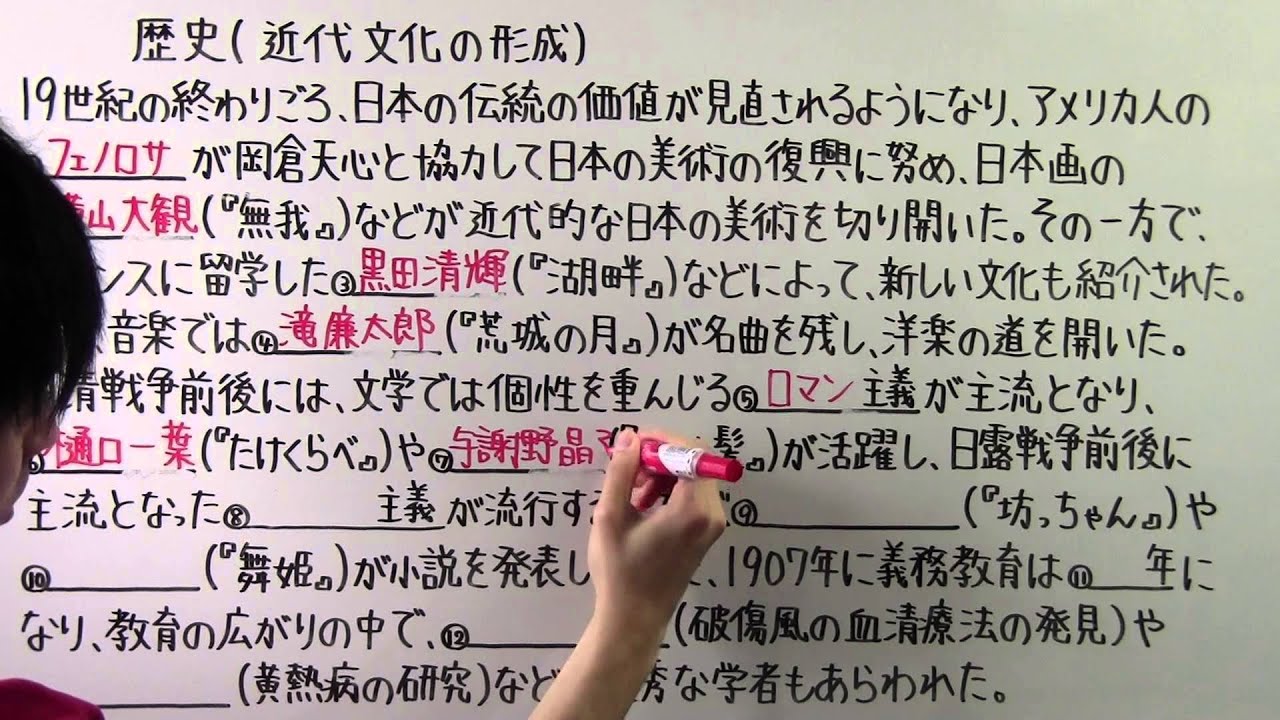 歴史(近代文化の形成)
19世紀の終わりごろ、日本の伝統の価値が見直されるようになり、アメリカ人の
フェノロサが岡倉天心と協力して日本の美術の復興に努め、日本画の
山大観(『無我』)などが近代的な日本の美術を切り開いた。その一方で、
ンスに留学した③黒田清輝(『湖畔』)などによって、新しい文化も紹介された。
音楽では④滝廉太郎(『荒城の月』)が名曲を残し、洋楽の道を開いた。
清戦争前後には、文学では個性を重んじる⑤ロマン主義が主流となり、
⑥樋口一葉(『たけくらべ』)や⑦与謝野晶子 髪』)が活躍し、日露戦争前後に
主流となった⑧ 主義が流行す ⑨ (『坊っちゃん』)や
⑩ (『舞姫』)が小説を発表し 、1907年に義務教育は⑪ 年に
なり、教育の広がりの中で、⑫ (破傷風の血清療法の発見)や
(黄熱病の研究)など 秀な学者もあらわれた。